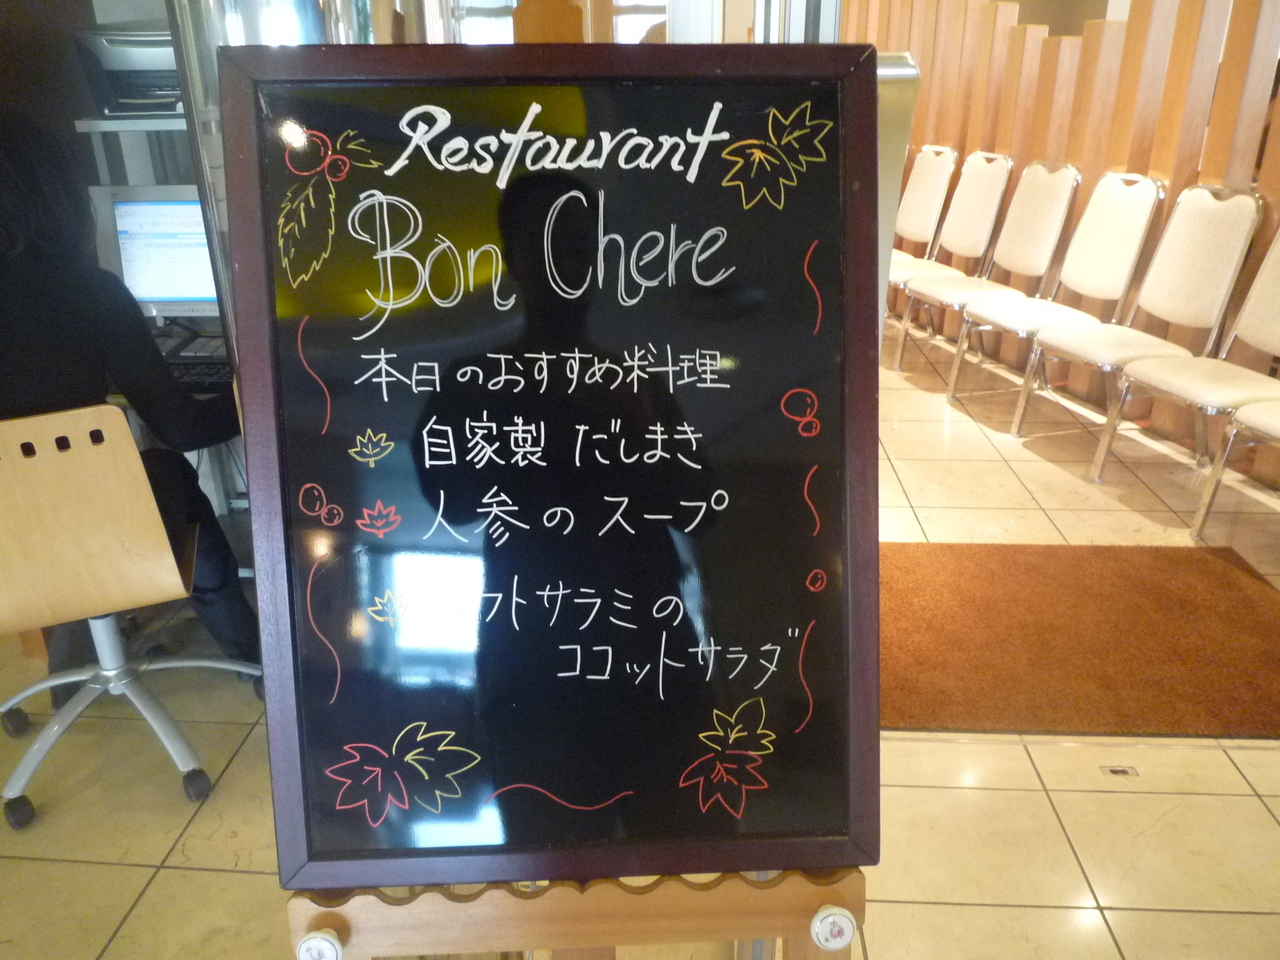 Restaurant
Bon Chere
本日のおすすめ料理
自家製 だしまき
人参のスープ
フトサラミの
ココットサラダ